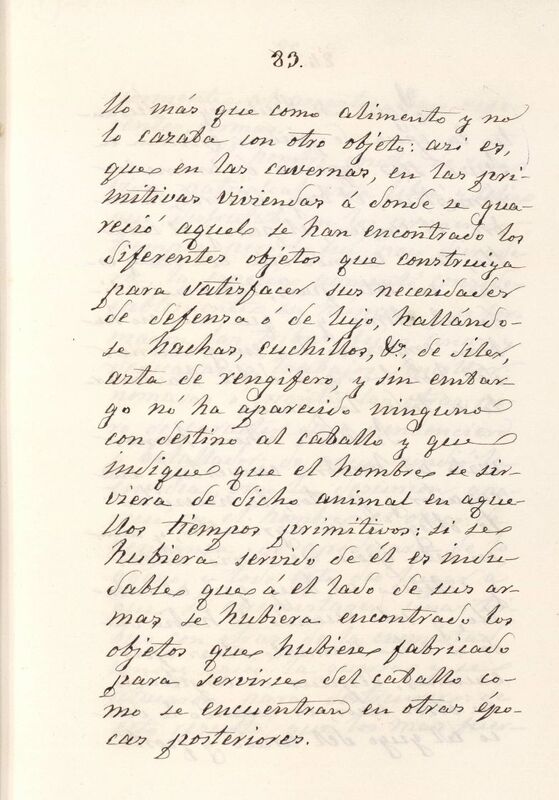 83.
llo más que como alimento y no
lo cazaba con otro objeto: asi es,
que en las cavernas, en las pri-
mitivas viviendas á donde se gua-
reció aquel se han encontrado los
diferentes objetos que construiya
para satisfacer sus necesidades
de defensa ó de lujo, hallándo-
se hachas, cuchillos, &ª, de silex,
asta de rengifero, y sin embar-
go nó ha aparecido ninguno
con destino al caballo y que
indique que el hombre se sir-
viera de dicho animal en aque-
llos tiempos primitivos: si se
hubiera servido de él es indu-
dable que á el lado de sus ar-
mas se hubiera encontrado los
objetos que hubiese fabricado
para servirse del caballo co-
mo se encuentran en otras épo-
cas posteriores.